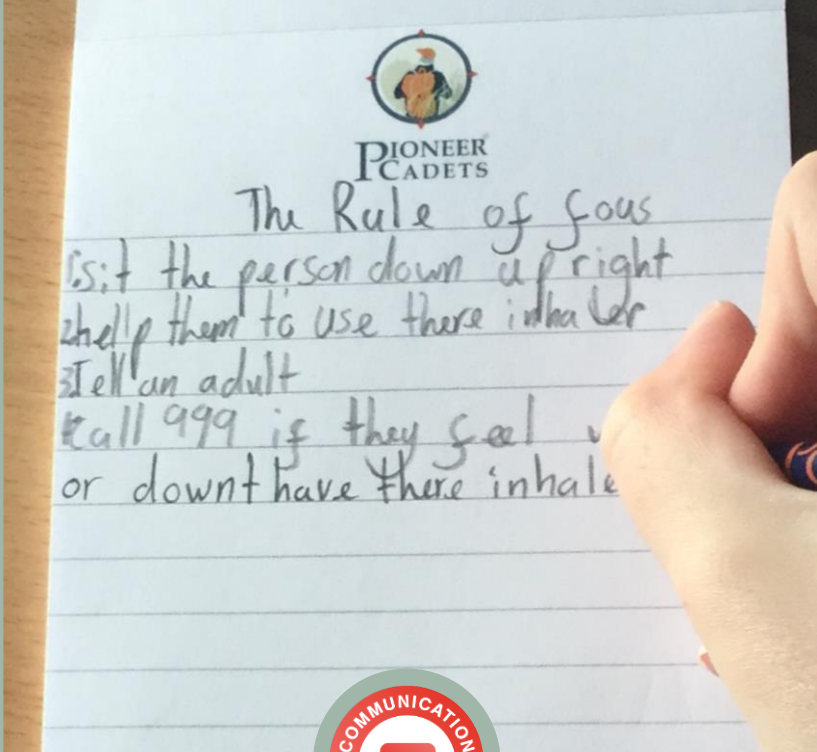 PIONEER
CADETS
The Rule of fous
1sit the person down upright
2help them to use there inhaler
3Tell an adult
4call 999 if they feel
or downt have there inhale
COMMUNICATION